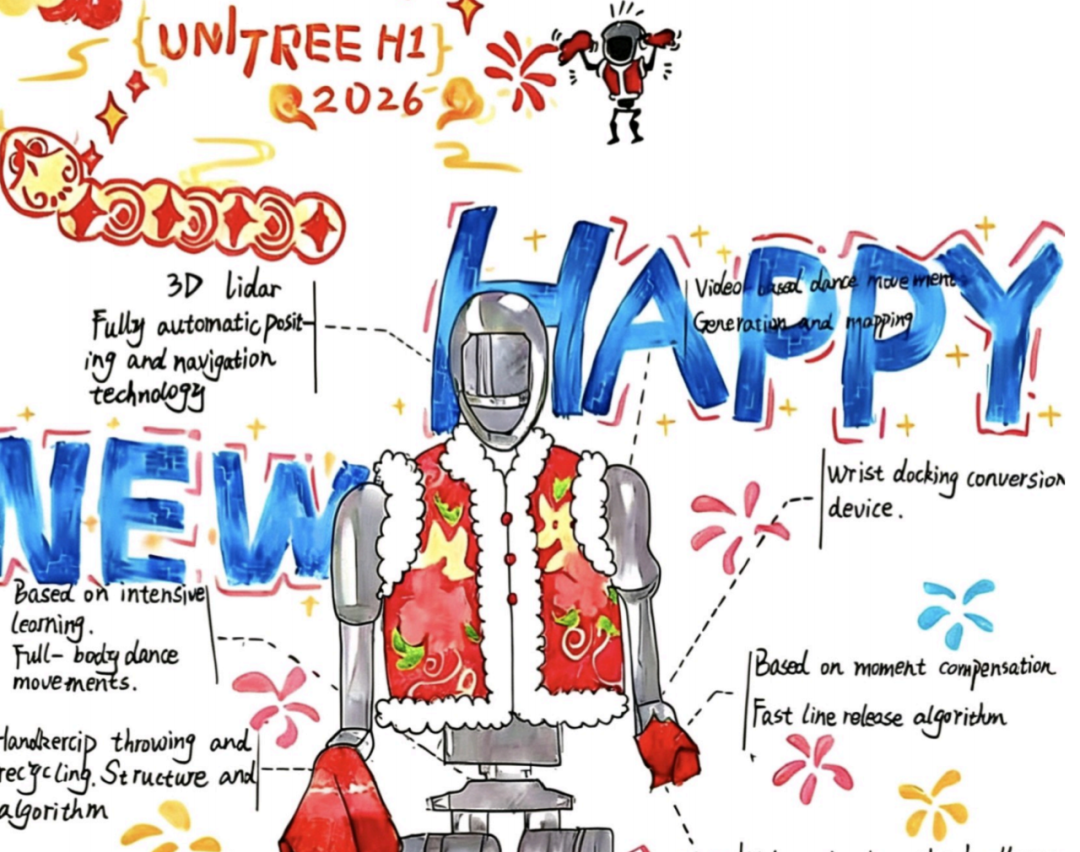 {UNITREE H1}
2026
HAPPY
3D lidar
Fully automatic posit-
ing and navigation
technology
Video based dance movement
Generation and mapping
NEW
Wrist docking conversion
device.
Based on intensive
learning.
Full-body dance
movements.
Based on moment compensation
Fast line release algorithm
Handkercip throwing and
recycling. Structure and
algorithm